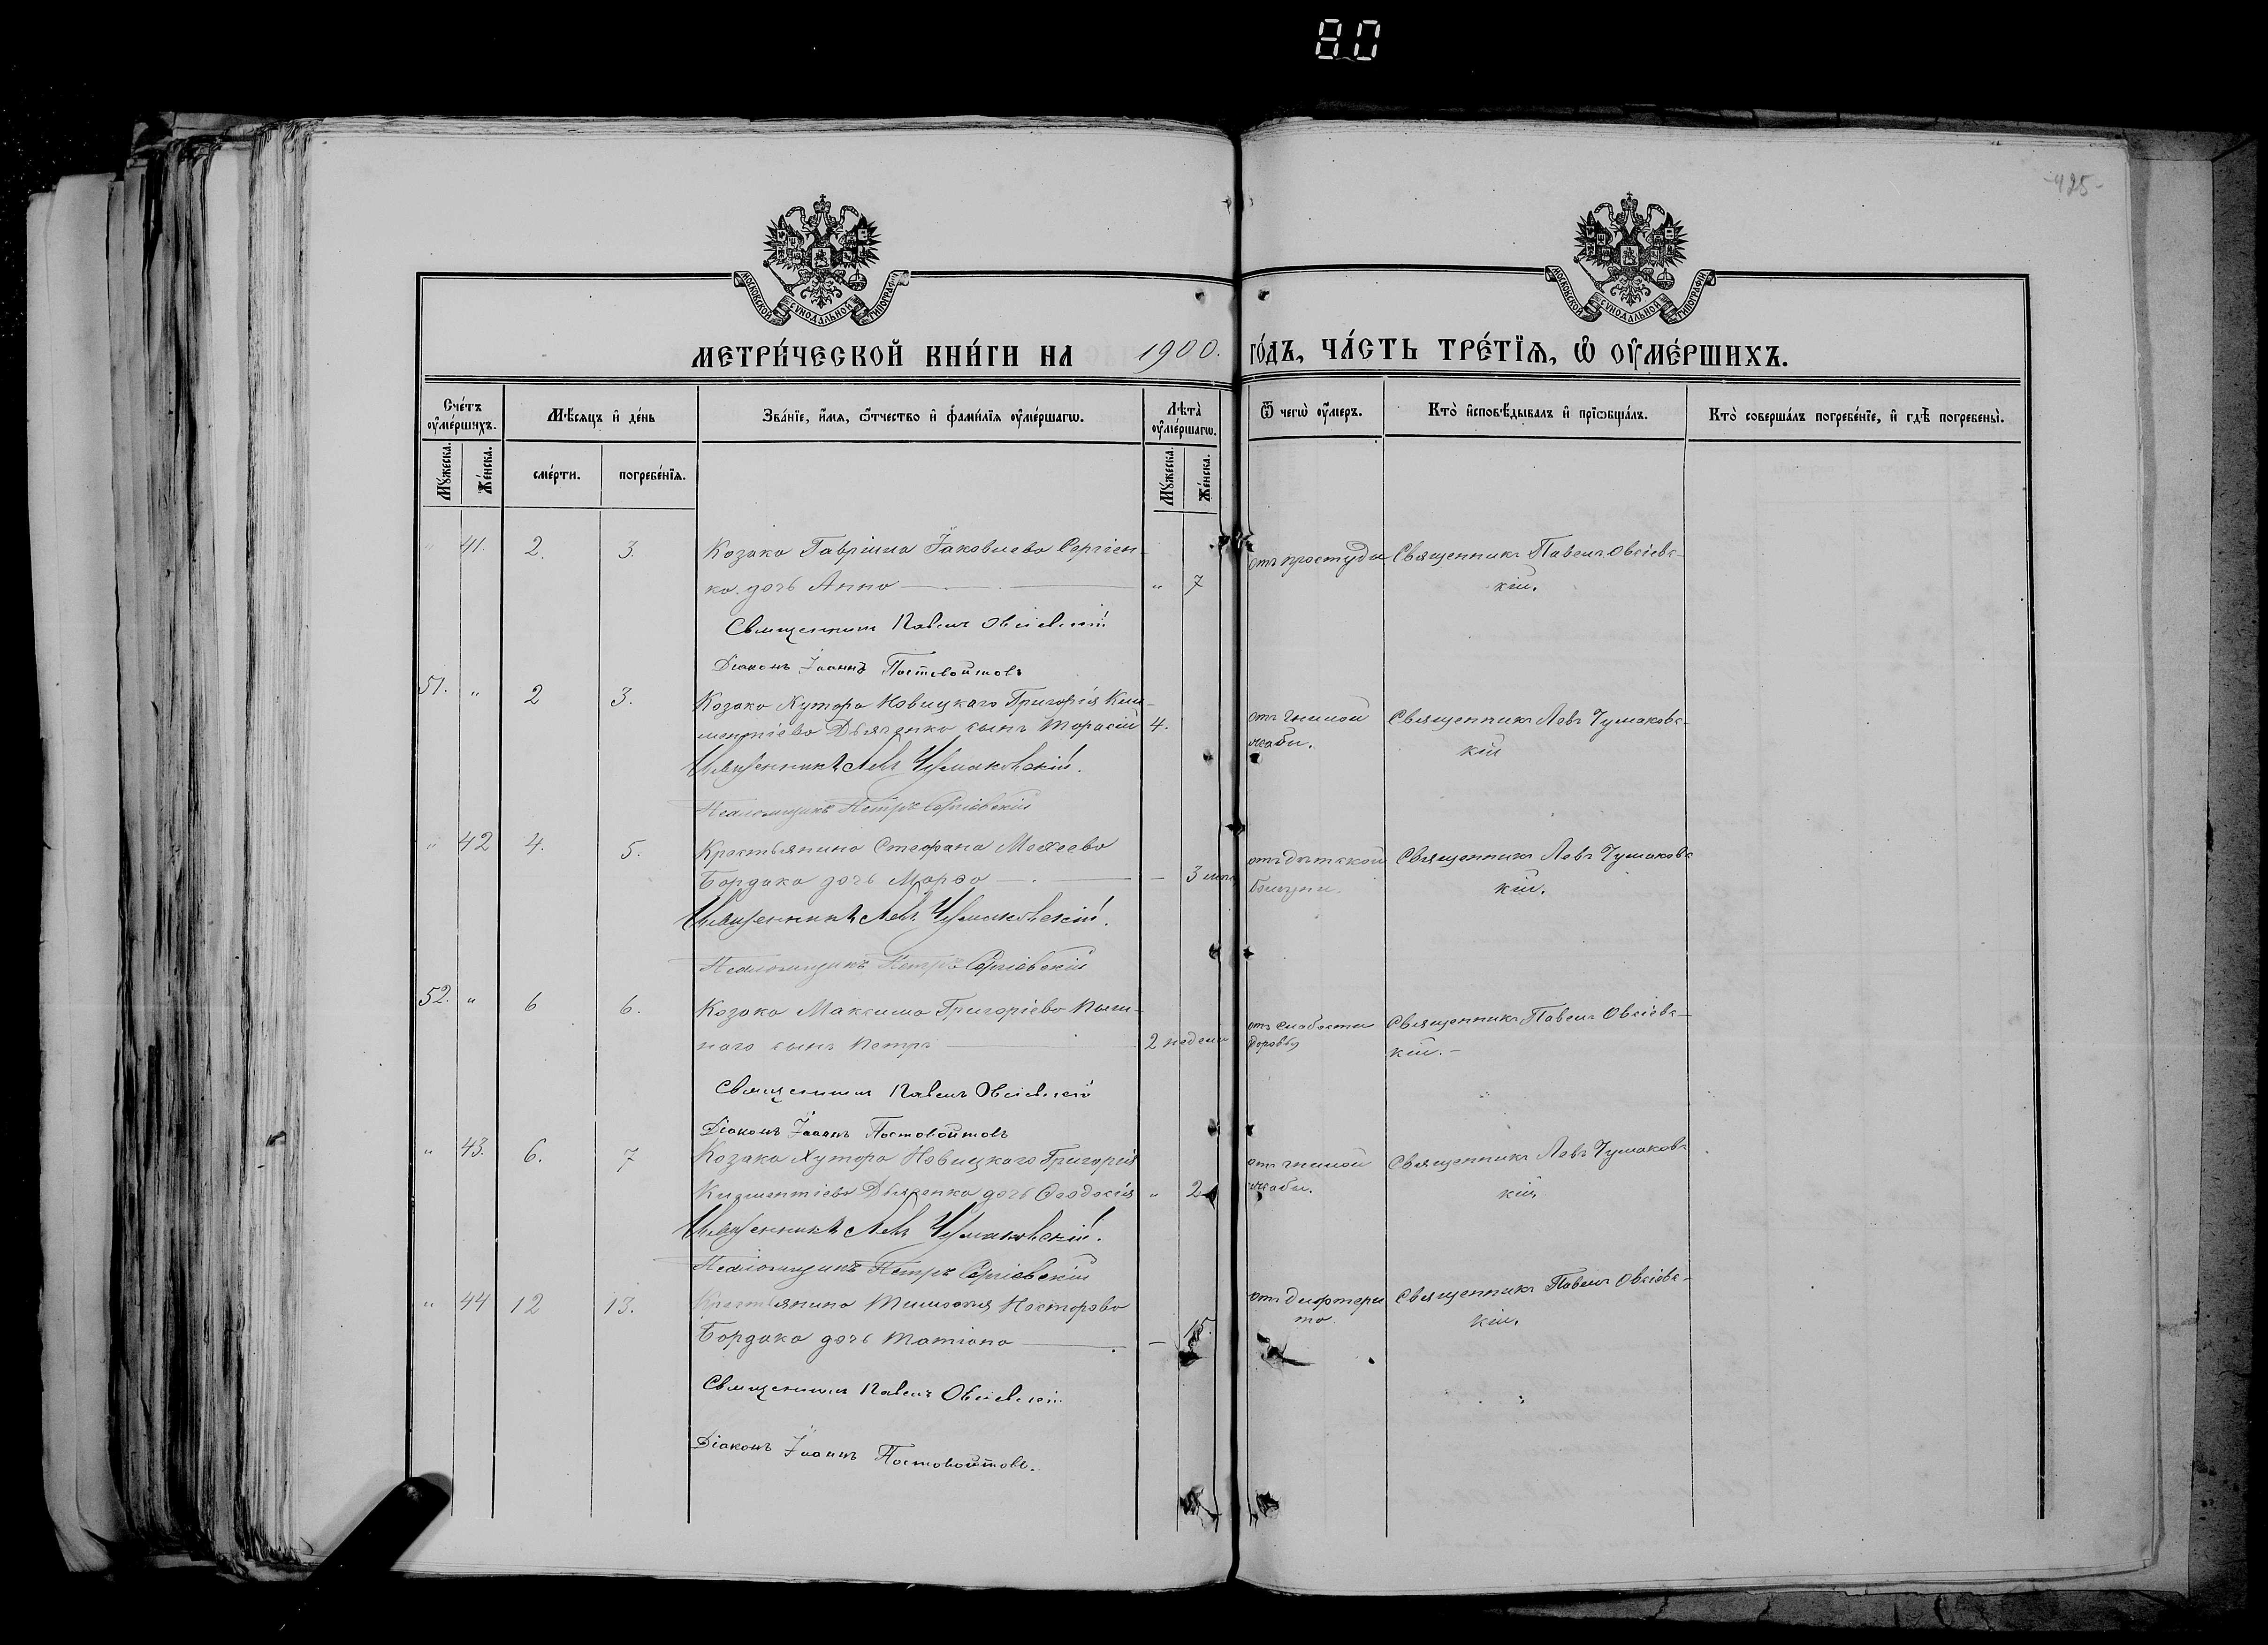 80
-425-
МОСКОВСКОЙ СУНОДАЛЬНОЙ ТИПОГРАФІИ
МОСКОВСКОЙ СУНОДАЛЬНОЙ ТИПОГРАФІИ
МЕТРИ́ЧЕСКОЙ КНИ́ГИ НА 1900. ГО́ДЪ, ЧА́СТЬ ТРЕ́ТІѦ, Ѡ ОУ҆МЕ́РШИХЪ.
Сче́тъ оу҆ме́ршихъ.
Мꙋ́жеска.
Же́нска.
Мѣ́сяцъ и҆ де́нь
сме́рти.
погребе́нїѧ.
Зва́нїе, и҆́мѧ, ѻ҆́тчество и҆ фамѝлїѧ оу҆ме́ршагѡ.
Лѣта̀ оу҆ме́ршагѡ.
Мꙋ́жеска.
Же́нска.
Ѿ чегѡ̀ оу҆́меръ.
Кто̀ и҆сповѣ́дывалъ и҆ прїѡбща́лъ.
Кто̀ соверша́лъ погребе́нїе, и҆ гдѣ̀ погребены̀.
" 41. 2. 3. Козака Гавріила Іаковлева Сергіен-
отъ простуды Священникъ Павелъ Овсіевс-
ка дочь Анна " 7
кій.
Священникъ Павелъ Овсіевскій
Діаконъ Іоаннъ Постовойтовъ
51. " 2 3. Козака Хутора Новицкаго Григорія Кли-
ментіева Дьяченка сынъ Тарасій 4.
отъ гнилой Священникъ Левъ Чумаковс-
жабы. кій
Священникъ Левъ Чумаковскій.
Псаломщикъ Петръ Сергіевскій
" 42 4. 5. Крестьянина Стефана Мохеева
Бордака дочь Марѳа — 3 мѣс.
отъ дѣтской Священникъ Левъ Чумаковс
кій.
Священникъ Левъ Чумаковскій.
Псаломщикъ Петръ Сергіевскій
52. " 6 6. Козака Максима Григоріева
наго сынъ Петръ 2 недели
отъ слабости Священникъ Павелъ Овсіевс-
кій.-
Священникъ Павелъ Овсіевскій
Діаконъ Іоаннъ Постовойтовъ
" 43. 6. 7 Козака Хутора Новицкаго Григорія
Климентіева Дьяченка дочь Ѳеодосія " 2
отъ гнилой Священникъ Левъ Чумаковс-
жабы. кій
Священникъ Левъ Чумаковскій.
Псаломщикъ Петръ Сергіевскій
" 44 12 13. Крестьянина Тимоѳея Несторова
Бордака дочь Татіана — 15.
отъ дифтери Священникъ Павелъ Овсіевс-
та. кій.
Священникъ Павелъ Овсіевскій
Діаконъ Іоаннъ Постовойтовъ.